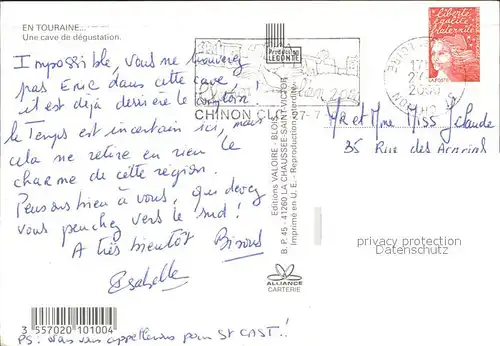 EN TOURAINE...
Une cave de dégustation.
Impossible, vous ne trouverez
pas Eric dans cette cave
il est déjà derrière le comptoir !
le temps est incertain ici, mais
cela ne retire en rien le
charme de cette région.
Pensons bien à vous, qui devez
vous penchez vers le sud !
A très bientôt Bisous
Isabelle
PS: vous appellerons pour St CAST..!
3 557020 101004
Editions VALOIRE - BLOIS
B. P. 45 - 41260 LA CHAUSSEE-SAINT-VICTOR
Imprimé en U. E. - Reproduction interdite
ALLIANCE
CARTERIE
Production
LECONTE
CHINON CLC 27-7
liberté
égalité
fraternité
LA POSTE
27
2000
CHINON
LOIRE
Mr et Mme Miss J Claude
35 Rue des Acacias
privacy protection
Datenschutz